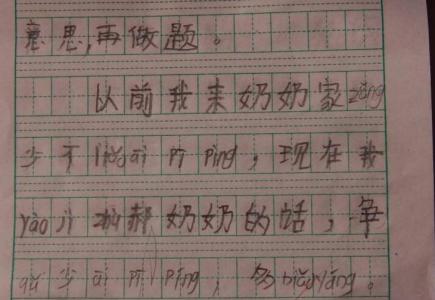 意思,再做题。
以前我来奶奶家zǒng
少不liǎoāi pī píng，现在我
yào jì 奶奶的话，争
qǔ 少 āi pī píng，多biǎoyáng。